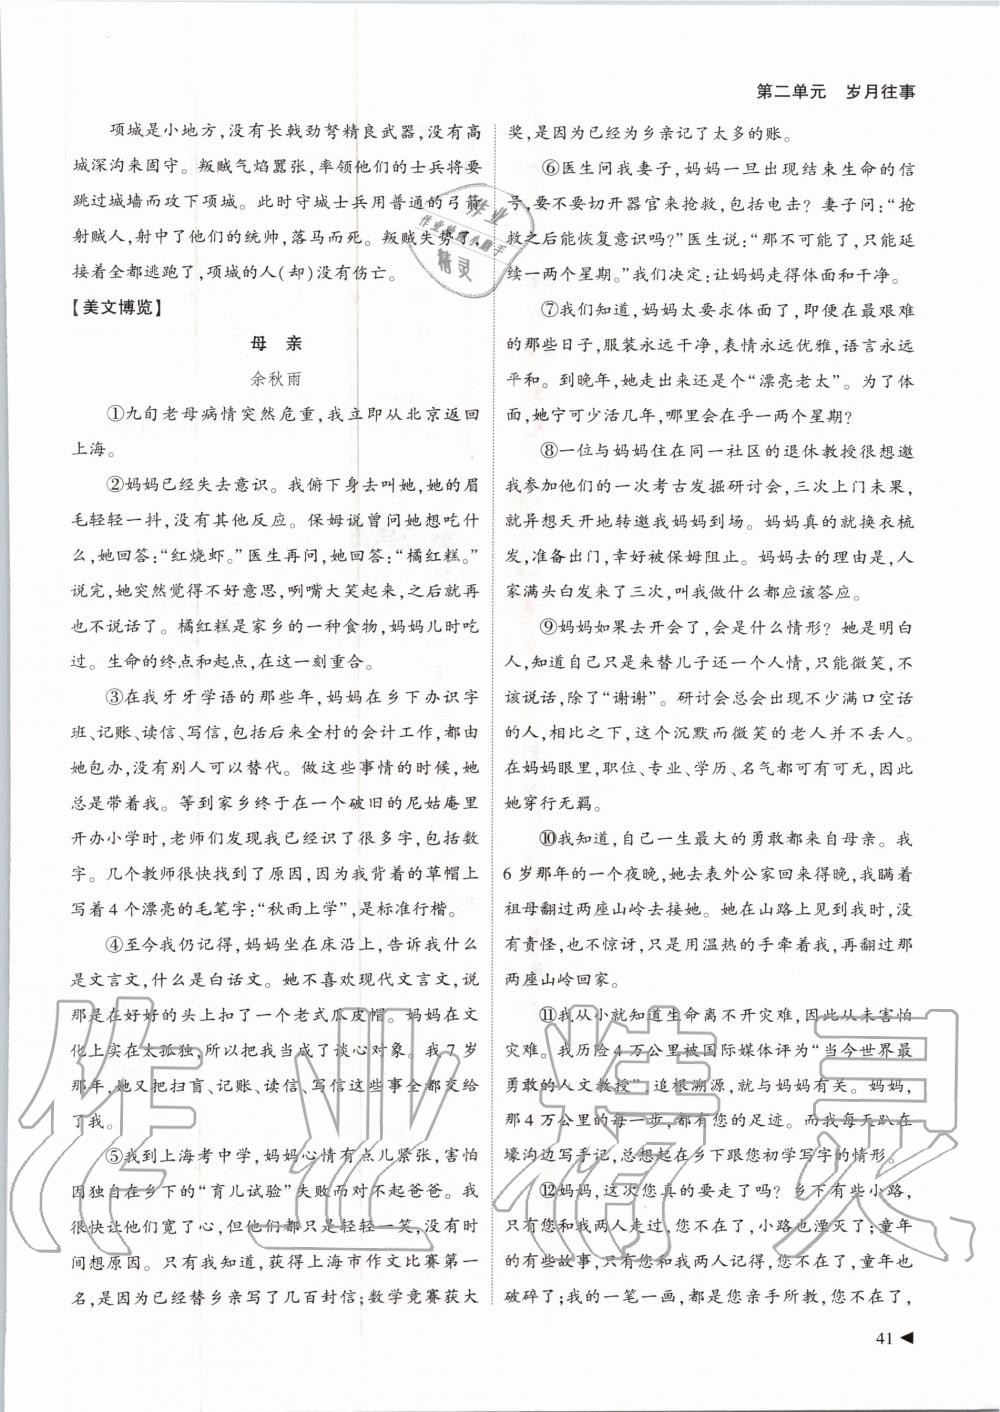 第二单元　岁月往事
项城是小地方,没有长戟劲弩精良武器,没有高
城深沟来固守。叛贼气焰嚣张,率领他们的士兵将要
跳过城墙而攻下项城。此时守城士兵用普通的弓箭
射贼人,射中了他们的统帅,落马而死。叛贼失势了,
接着全都逃跑了,项城的人(却)没有伤亡。
【美文博览】
母　亲
余秋雨
①九旬老母病情突然危重,我立即从北京返回
上海。
②妈妈已经失去意识。我俯下身去叫她,她的眉
毛轻轻一抖,没有其他反应。保姆说曾问她想吃什
么,她回答:“红烧虾。”医生再问,她回答:“橘红糕。”
说完,她突然觉得不好意思,咧嘴大笑起来,之后就再
也不说话了。橘红糕是家乡的一种食物,妈妈儿时吃
过。生命的终点和起点,在这一刻重合。
③在我牙牙学语的那些年,妈妈在乡下办识字
班、记账、读信、写信,包括后来全村的会计工作,都由
她包办,没有别人可以替代。做这些事情的时候,她
总是带着我。等到家乡终于在一个破旧的尼姑庵里
开办小学时,老师们发现我已经识了很多字,包括数
字。几个教师很快找到了原因,因为我背着的草帽上
写着4个漂亮的毛笔字:“秋雨上学”,是标准行楷。
④至今我仍记得,妈妈坐在床沿上,告诉我什么
是文言文,什么是白话文。她不喜欢现代文言文,说
那是在好好的头上扣了一个老式瓜皮帽。妈妈在文
化上实在太孤独,所以把我当成了谈心对象。我7岁
那年,她又把扫盲、记账、读信、写信这些事全都交给
了我。
⑤我到上海考中学,妈妈心情有点儿紧张,害怕
因独自在乡下的“育儿试验”失败而对不起爸爸。我
很快让他们宽了心,但他们都只是轻轻一笑,没有时
间想原因。只有我知道,获得上海市作文比赛第一
名,是因为已经替乡亲写了几百封信;数学竞赛获大
奖,是因为已经为乡亲记了太多的账。
⑥医生问我妻子,妈妈一旦出现结束生命的信
号,要不要切开器官来抢救,包括电击?妻子问:“抢
救之后能恢复意识吗?”医生说:“那不可能了,只能延
续一两个星期。”我们决定:让妈妈走得体面和干净。
⑦我们知道,妈妈太要求体面了,即便在最艰难
的那些日子,服装永远干净,表情永远优雅,语言永远
平和。到晚年,她走出来还是个“漂亮老太”。为了体
面,她宁可少活几年,哪里会在乎一两个星期?
⑧一位与妈妈住在同一社区的退休教授很想邀
我参加他们的一次考古发掘研讨会,三次上门未果,
就异想天开地转邀我妈妈到场。妈妈真的就换衣梳
发,准备出门,幸好被保姆阻止。妈妈去的理由是,人
家满头白发来了三次,叫我做什么都应该答应。
⑨妈妈如果去开会了,会是什么情形?她是明白
人,知道自己只是来替儿子还一个人情,只能微笑,不
该说话,除了“谢谢”。研讨会总会出现不少满口空话
的人,相比之下,这个沉默而微笑的老人并不丢人。
在妈妈眼里,职位、专业、学历、名气都可有可无,因此
她穿行无羁。
⑩我知道,自己一生最大的勇敢都来自母亲。我
6岁那年的一个夜晚,她去表外公家回来得晚,我瞒着
祖母翻过两座山岭去接她。她在山路上见到我时,没
有责怪,也不惊讶,只是用温热的手牵着我,再翻过那
两座山岭回家。
⑪我从小就知道生命离不开灾难,但从未害怕
灾难。我历险4万公里被国际媒体评为“当今世界最
勇敢的人文教授”,追根溯源,就与妈妈有关。妈妈,
那4万公里的每一步,都有您的足迹。而我每天趴在
壕沟边写手记,总想起在乡下跟您初学写字的情形。
⑫妈妈,这次您真的要走了吗?乡下有些小路,
只有您和我两人走过,您不在了,小路也湮灭了;童年
的有些故事,只有您和我两人记得,您不在了,童年也
破碎了;我的一笔一画,都是您亲手所教,您不在了,
41
作业
作业检查小助手
精灵
作业精灵